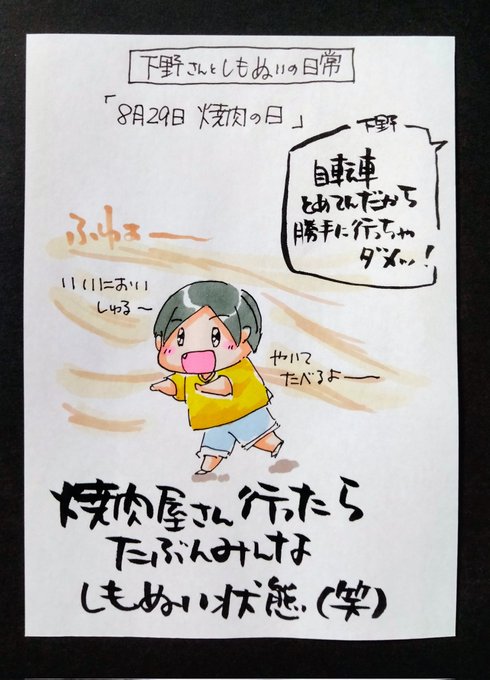 下野さんとしもぬいの日常
「8月29日 焼肉の日」
下野
自転車
とめてんだから
勝手に行っちゃ
ダメッ!
ふわぁー
いいにおい
しゅる〜
やいて
たべるよー
焼肉屋さん行ったら
たぶんみんな
しもぬい状態(笑)